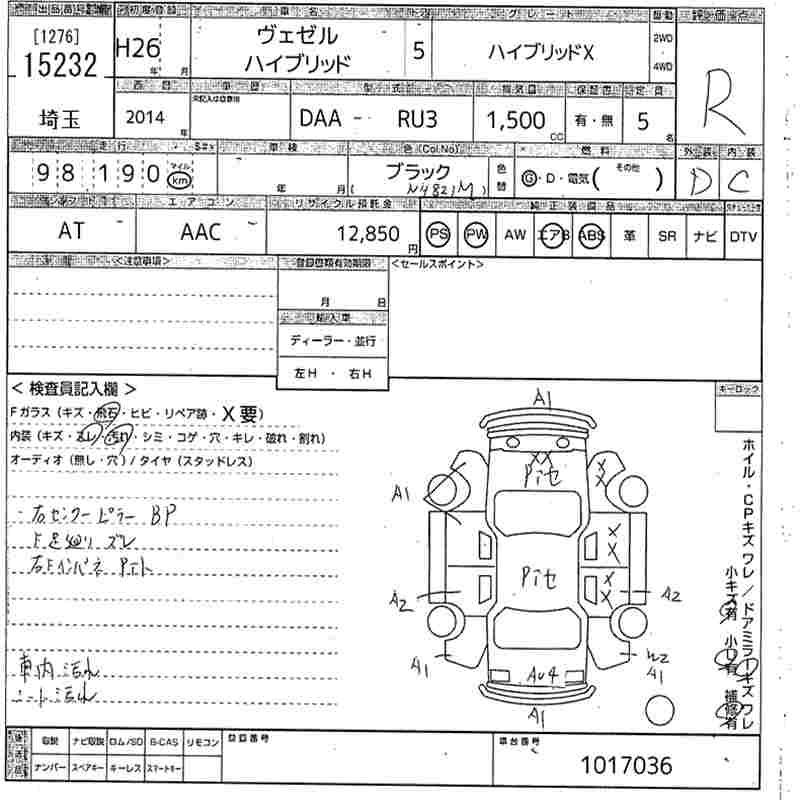 出品番号 初度登録 車名 ドア グレード 駆動 評価点
[1276]
15232
H26
年 月
ヴェゼル
ハイブリッド
5
ハイブリッドX
2WD
4WD
R
埼玉
西暦 車歴 型式 排気量 保証書 定員
2014
年
DAA - RU3
1,500
CC
有・無
5
名
走行 車検 色(Col.No) 燃料 外装 内装
98190
マイル
km
年 月
ブラック
(N4821M)
色替
G・D・電気( その他 )
D C
エアコン リサイクル預託金 純正装備品
AT
AAC
12,850
円
PS PW AW エアB ABS 革 SR ナビ DTV
<注意事項>
登録書類有効期限
<セールスポイント>
月 日
輸入車
ディーラー・並行
左H ・ 右H
< 検査員記入欄 >
Fガラス (キズ・飛石・ヒビ・リペア跡・X要)
内装 (キズ・スレ・汚れ・シミ・コゲ・穴・キレ・破れ・割れ)
オーディオ (無し・穴) / タイヤ (スタッドレス)
右センターピラー BP
F足廻り ズレ
右Fインパネ
車内 汚れ
シート汚れ
キーロック
A1
XX
Pセ
X
X
A1
X
X
Pセ
X
X
A2
A2
A1
W2
A1
AU4
A1
ホイル・CPキズ ワレ / ドアミラーキズ ワレ
小キズ有 小凹有 補修有
後送品
取説 ナビ取説 ロム/SD B-CAS リモコン
ナンバー スペアキー キーレス スマートキー
登録番号
車台番号
1017036